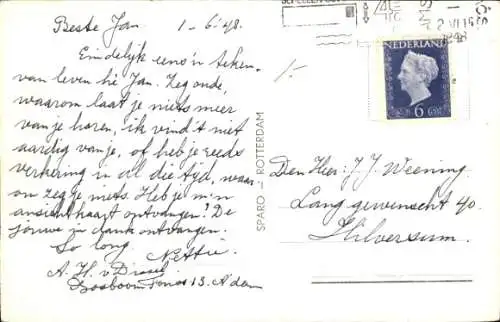 Beste Jan, 1-6-'48.
Eindelijk eens 'n teken
van leven hè Jan. Zeg onde,
waarom laat je niets meer
van je horen, ik vind 't niet
aardig van je, of heb je reeds
verkering in al die tijd, waar
om zeg je niets. Heb je m'n
ansichtkaart ontvangen? De
jouwe in dank ontvangen.
So long.
Nettie.
A. H. v Dissel
Bosboom 13. A'dam
SPARO - ROTTERDAM
2 VI 15
1948
NEDERLAND
6 CENT
Den Heer: J. J. Weening.
Lang gewenscht 40.
Hilversum.